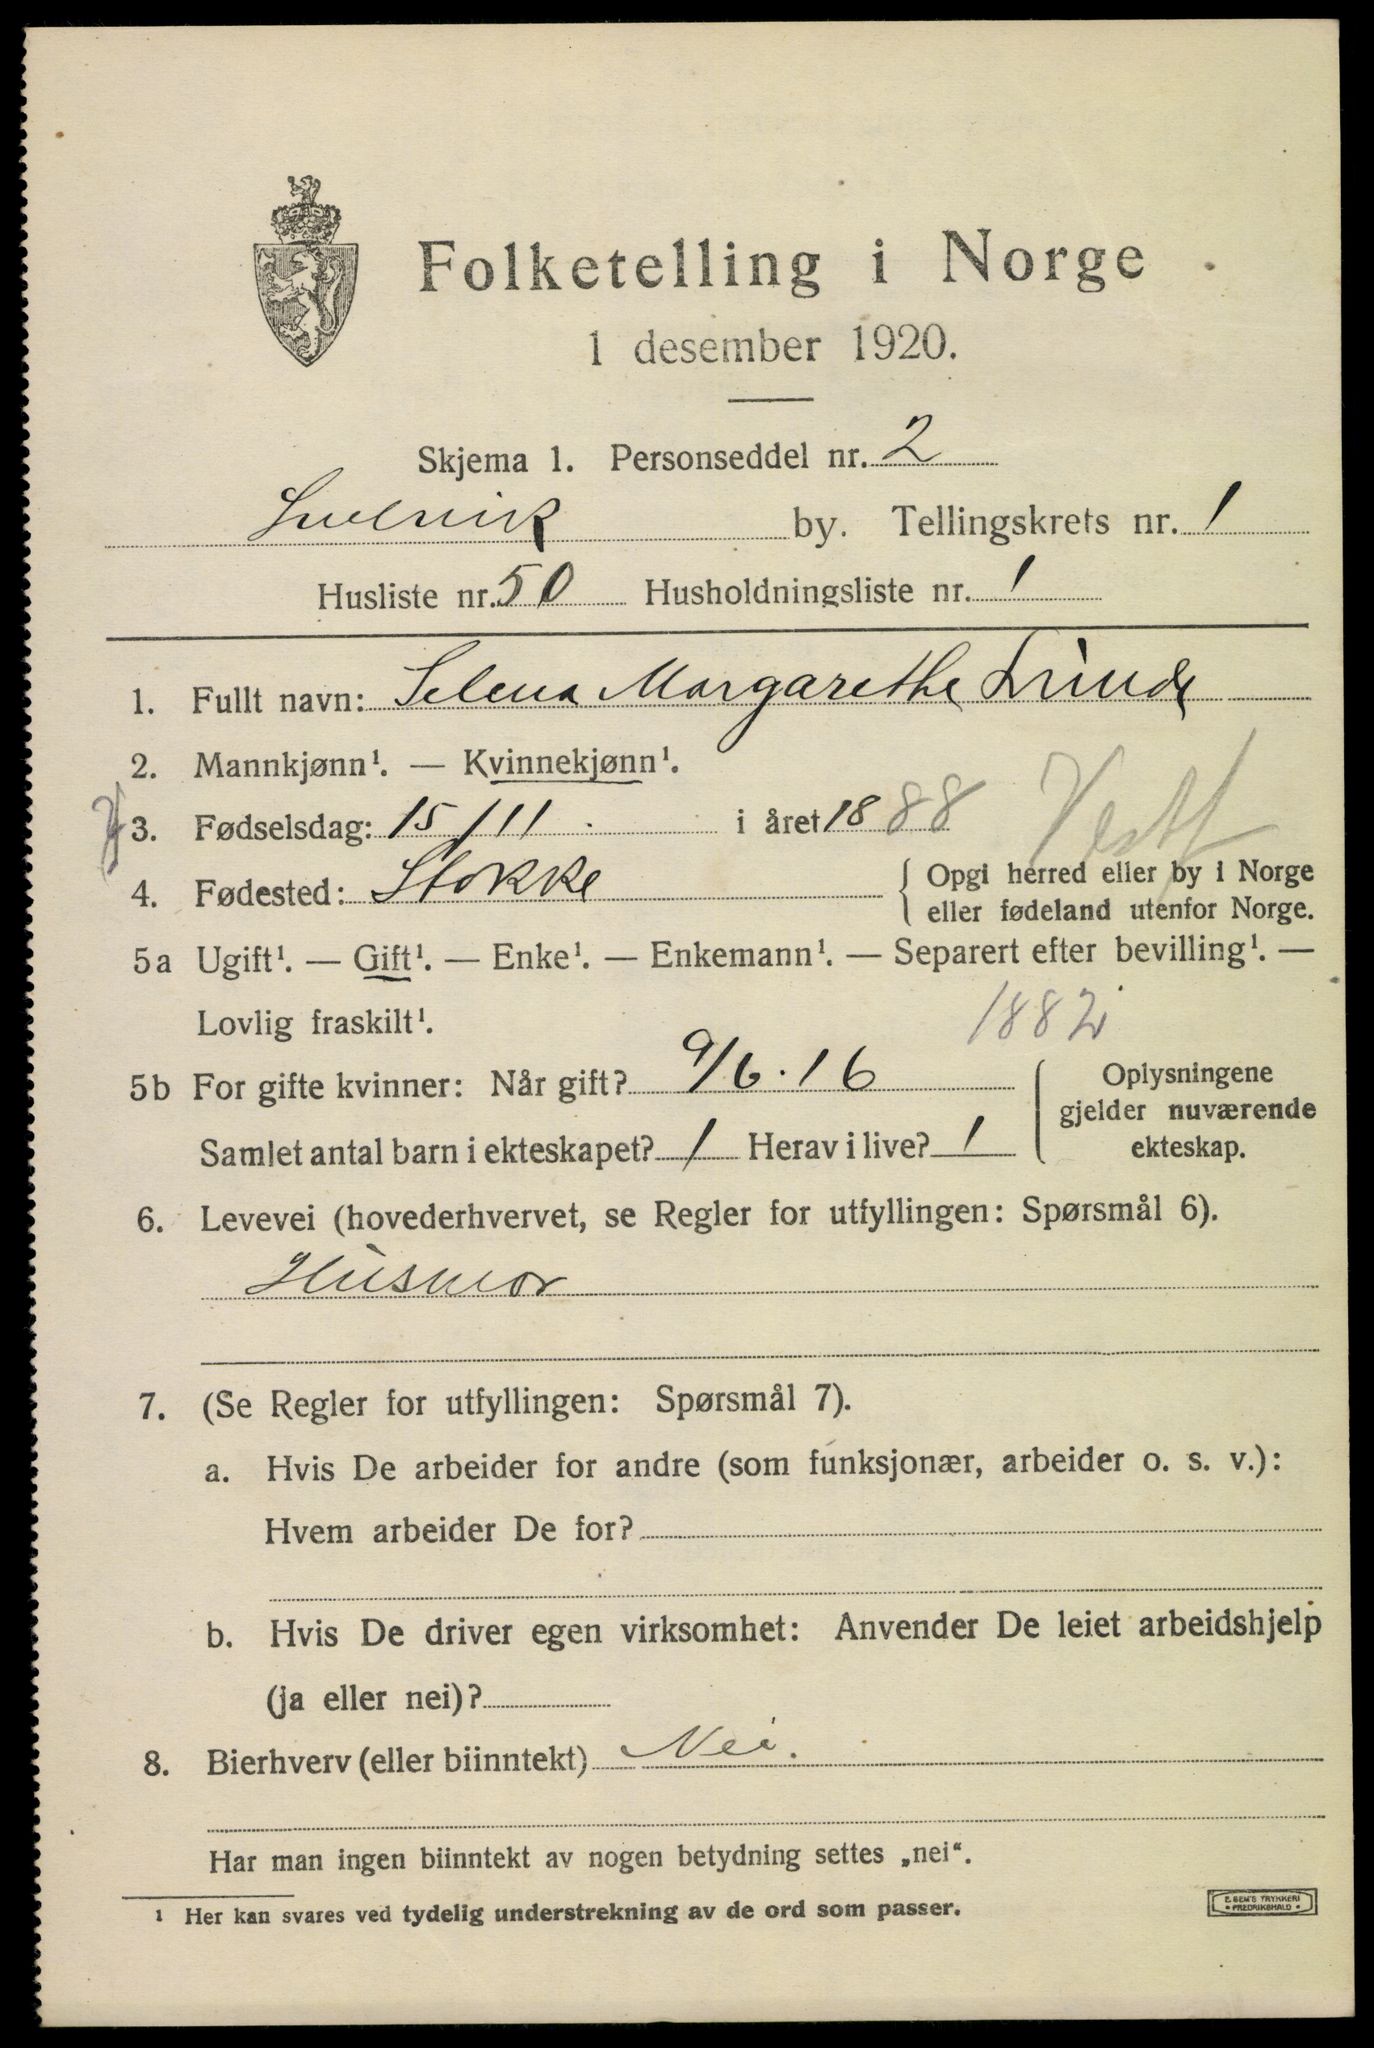 Folketelling i Norge
1 desember 1920.
Skjema 1. Personseddel nr. 2
Svelvik by. Tellingskrets nr. 1
Husliste nr. 50 Husholdningsliste nr. 1
1. Fullt navn: Selena Margarethe Lunde
2. Mannkjønn¹. — Kvinnekjønn¹.
3. Fødselsdag: 15/11. i året 1888 Vestf
4. Fødested: Stokke { Opgi herred eller by i Norge
eller fødeland utenfor Norge.
5a Ugift¹. — Gift¹. — Enke¹. — Enkemann¹. — Separert efter bevilling¹. —
Lovlig fraskilt¹. 1882
5b For gifte kvinner: Når gift? 9/6.16 { Oplysningene
gjelder nuværende
Samlet antal barn i ekteskapet? 1 Herav i live? 1 ekteskap.
6. Levevei (hovederhvervet, se Regler for utfyllingen: Spørsmål 6).
Husmor
7. (Se Regler for utfyllingen: Spørsmål 7).
a. Hvis De arbeider for andre (som funksjonær, arbeider o. s. v.):
Hvem arbeider De for?
b. Hvis De driver egen virksomhet: Anvender De leiet arbeidshjelp
(ja eller nei)?
8. Bierhverv (eller biinntekt) Nei.
Har man ingen biinntekt av nogen betydning settes „nei“.
¹ Her kan svares ved tydelig understrekning av de ord som passer.
E. SEM'S TRYKKERI
* FREDRIKSHALD *